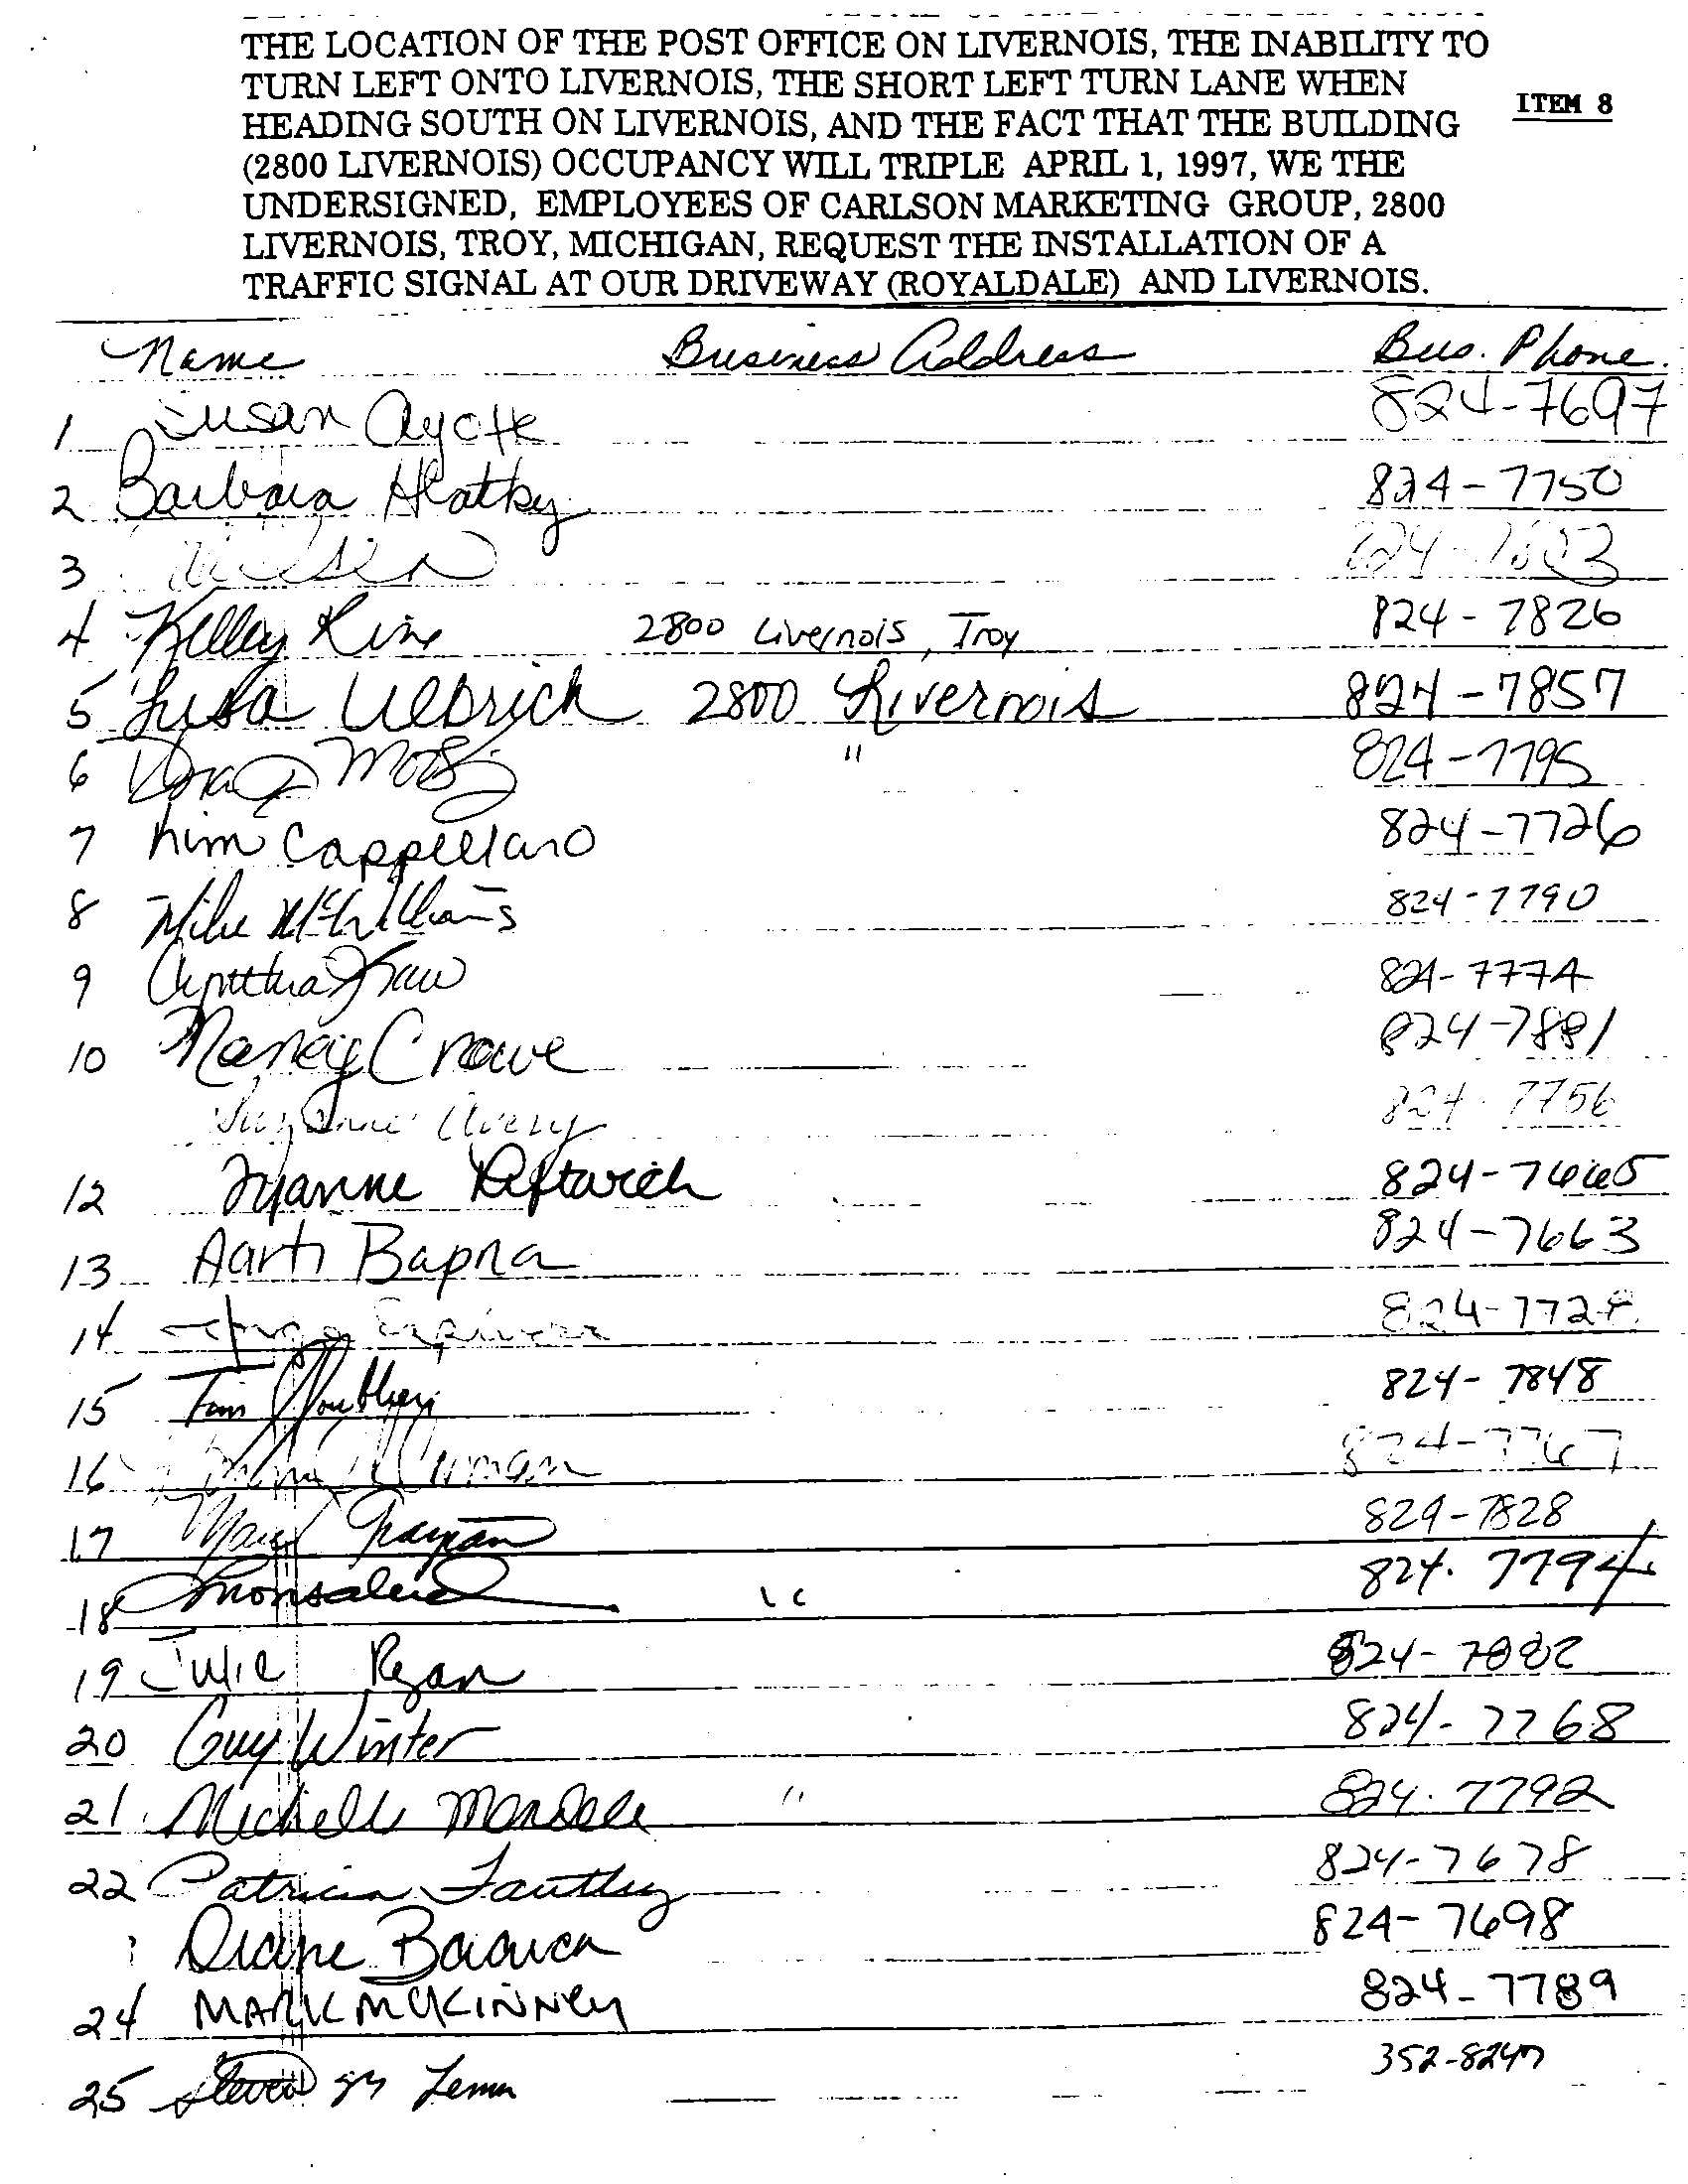 THE LOCATION OF THE POST OFFICE ON LIVERNOIS, THE INABILITY TO
TURN LEFT ONTO LIVERNOIS, THE SHORT LEFT TURN LANE WHEN
HEADING SOUTH ON LIVERNOIS, AND THE FACT THAT THE BUILDING
ITEM 8
(2800 LIVERNOIS) OCCUPANCY WILL TRIPLE APRIL 1, 1997, WE THE
UNDERSIGNED, EMPLOYEES OF CARLSON MARKETING GROUP, 2800
LIVERNOIS, TROY, MICHIGAN, REQUEST THE INSTALLATION OF A
TRAFFIC SIGNAL AT OUR DRIVEWAY (ROYALDALE) AND LIVERNOIS.
Name Business Address Bus. Phone
1 Susan Ayotte 824-7697
2 Barbara Hlatky 824-7750
3
4 Kelley King 2800 Livernois, Troy 824-7826
5 Lisa Ulbrich 2800 Livernois 824-7857
6 " 824-7795
7 Kim Cappellaro 824-7726
8 Mike McWilliams 824-7790
9 Cynthia 824-7774
10 Nancy Crowe 824-7881
Suzanne Avery 824-7756
12 824-7665
13 Aarti Bapna 824-7663
14
15 Tim 824-7848
16 824-7767
17 Mary 824-7828
18 824-7794
19 Julie Ryan
20 Guy Winter 824-7768
21 Michelle " 824-7792
22 Patricia Fautley 824-7678
Diane 824-7698
24 MARK MCKINNEY 824-7789
25 Steven 352-8247